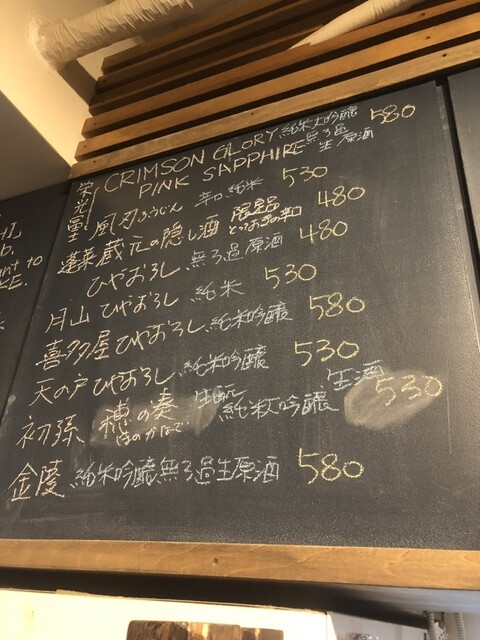 栄光冨士 CRIMSON GLORY 純米大吟醸 580
PINK SAPPHIRE 無ろ過生原酒
風刃ふうじん 辛口純米 530
蓬莱 蔵元の隠し酒 限定品 480
ひやおろし 無ろ過原酒 480
月山 ひやおろし 純米 530
喜多屋 ひやおろし 純米吟醸 580
天の戸 ひやおろし 純米吟醸 530
初孫 穂の湊 生酛 純米大吟醸 生酒 530
ほのかなで
金陵 純米吟醸無ろ過生原酒 580